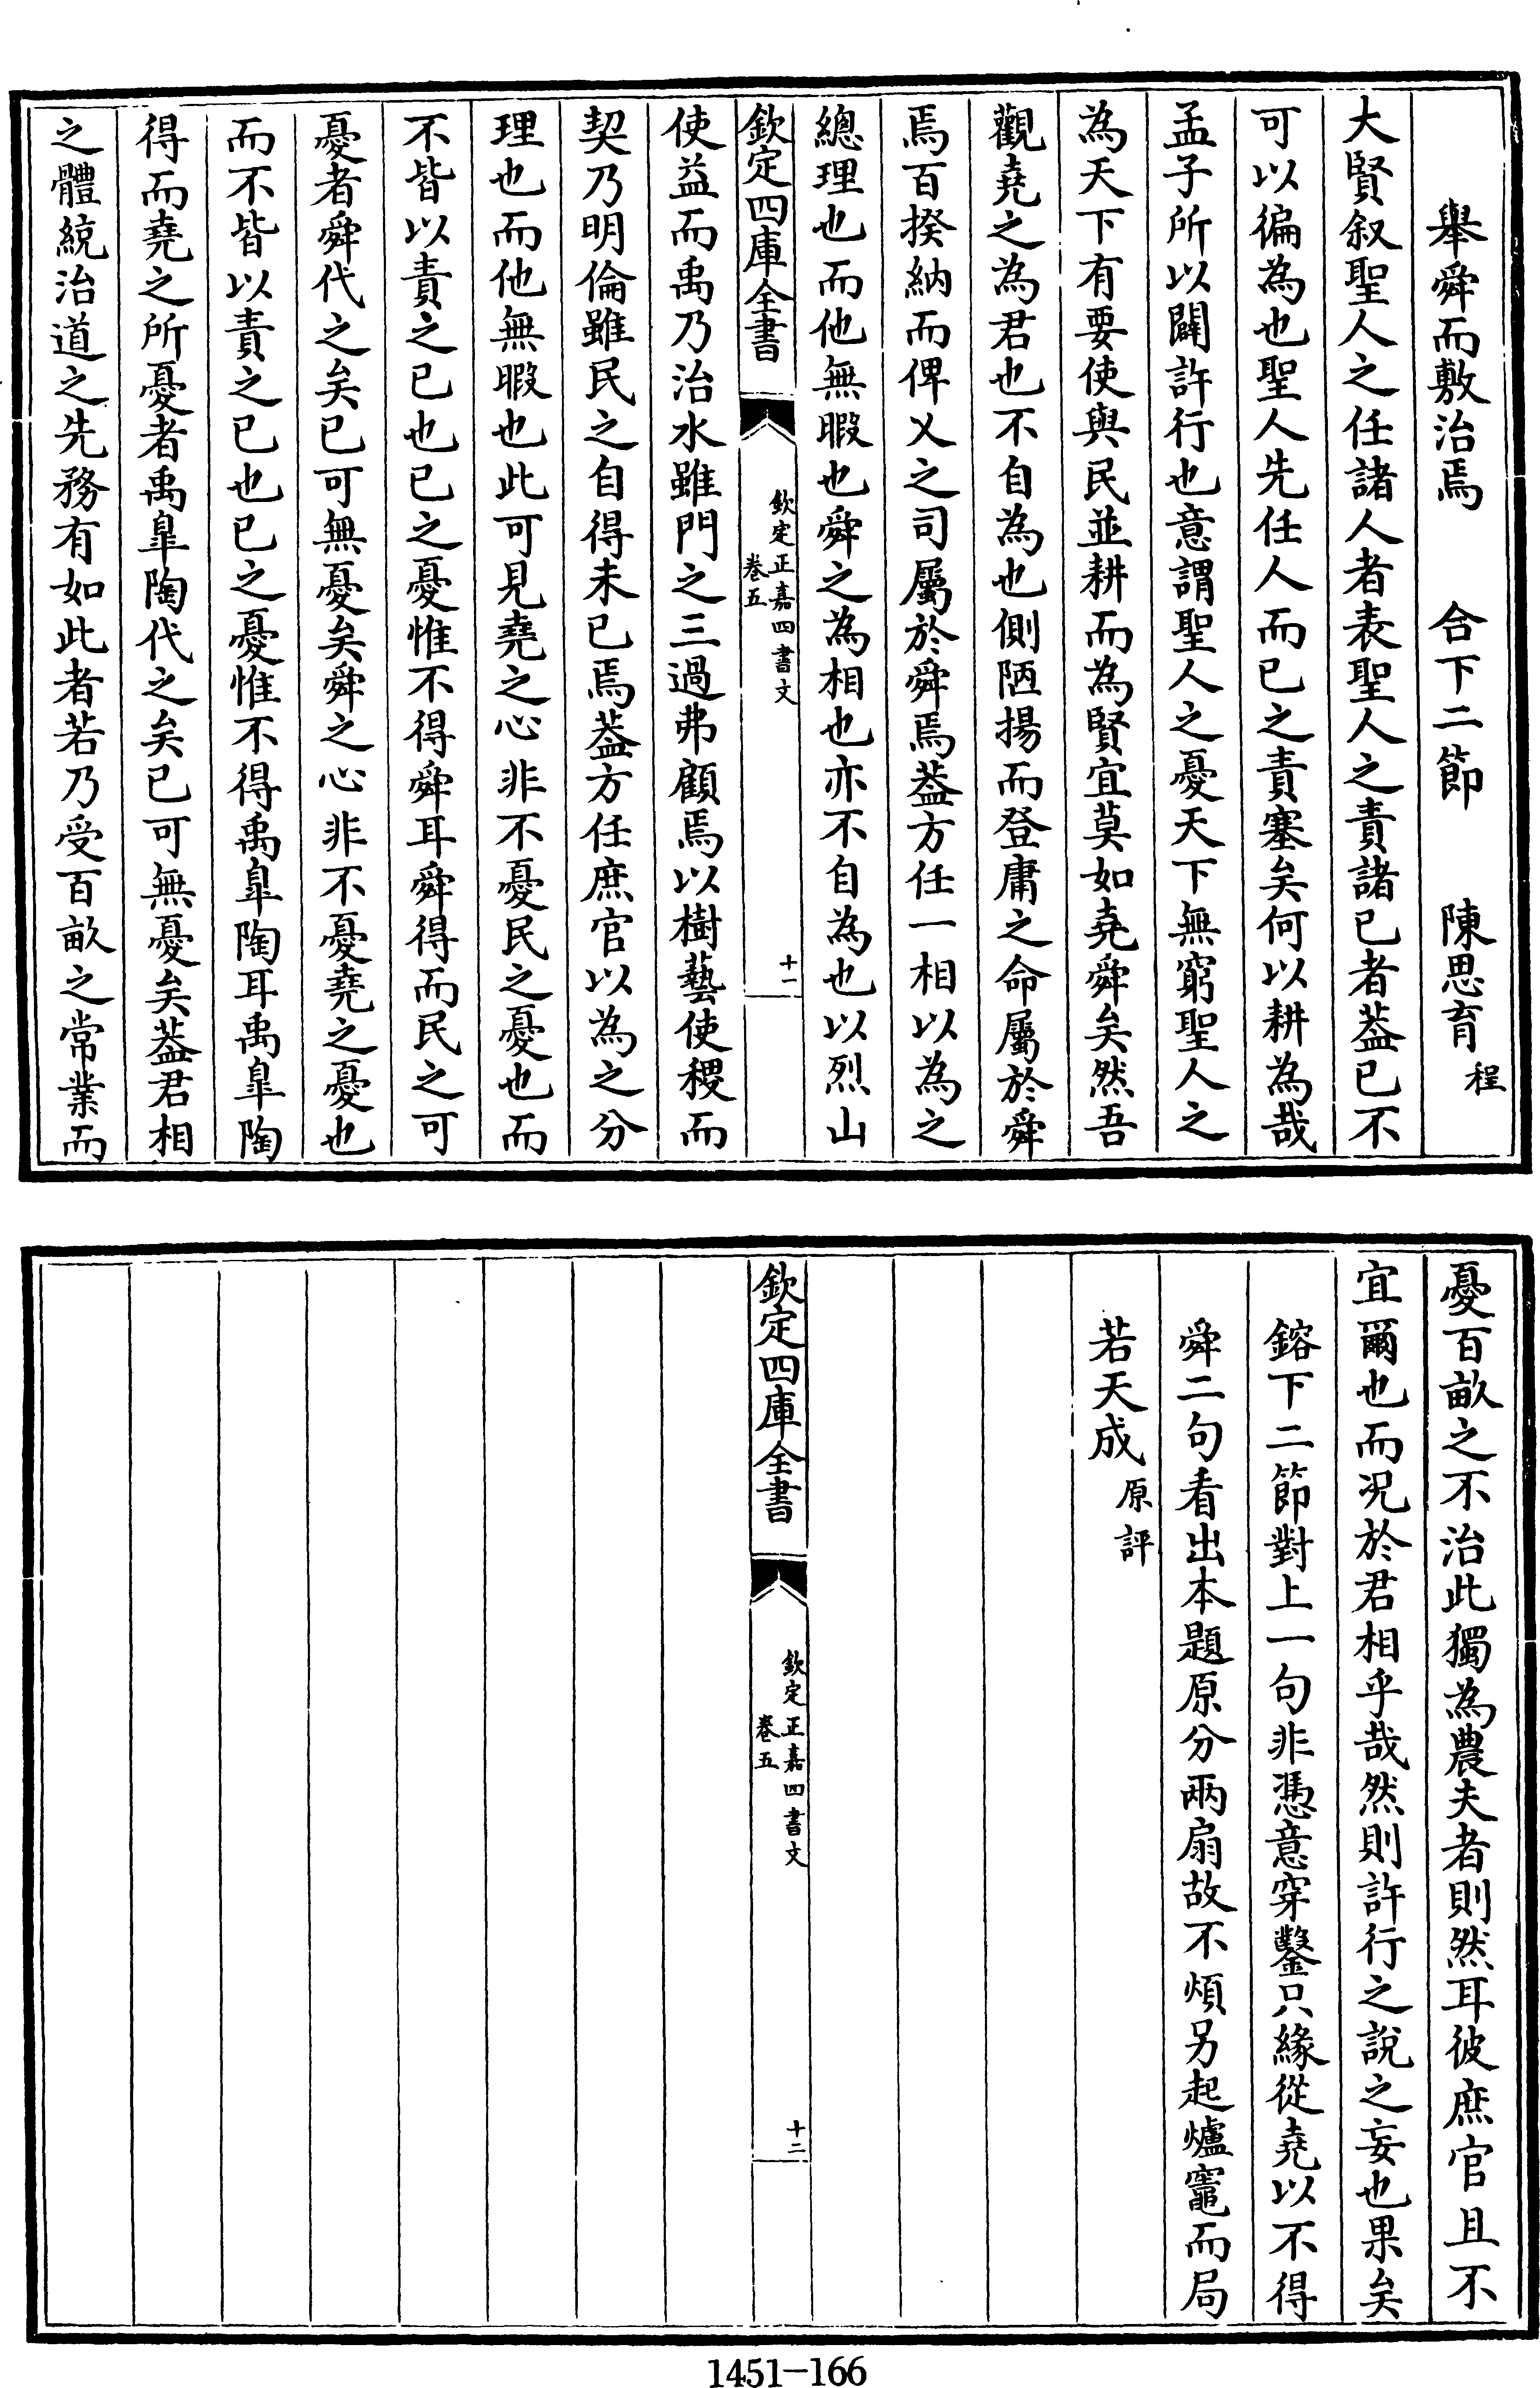 舉舜而敷治焉　合下二節　陳思育　程
大賢叙聖人之任諸人者表聖人之責諸已者葢已不
可以徧為也聖人先任人而已之責塞矣何以耕為哉
孟子所以闢許行也意謂聖人之憂天下無窮聖人之
為天下有要使與民並耕而為賢宜莫如堯舜矣然吾
觀堯之為君也不自為也側陋揚而登庸之命屬於舜
焉百揆納而俾乂之司屬於舜焉葢方任一相以為之
總理也而他無暇也舜之為相也亦不自為也以烈山
欽定四庫全書
欽定正嘉四書文
卷五
十一
使益而禹乃治水雖門之三過弗顧焉以樹藝使稷而
契乃明倫雖民之自得未已焉葢方任庶官以為之分
理也而他無暇也此可見堯之心非不憂民之憂也而
不皆以責之已也已之憂惟不得舜耳舜得而民之可
憂者舜代之矣已可無憂矣舜之心非不憂堯之憂也
而不皆以責之已也已之憂惟不得禹臯陶耳禹臯陶
得而堯之所憂者禹臯陶代之矣已可無憂矣葢君相
之體統治道之先務有如此者若乃受百畝之常業而
憂百畝之不治此獨為農夫者則然耳彼庶官且不
宜爾也而况於君相乎哉然則許行之說之妄也果矣
鎔下二節對上一句非憑意穿鑿只緣從堯以不得
舜二句看出本題原分兩扇故不煩另起爐竈而局
若天成原評
欽定四庫全書
欽定正嘉四書文
卷五
十二
1451-166